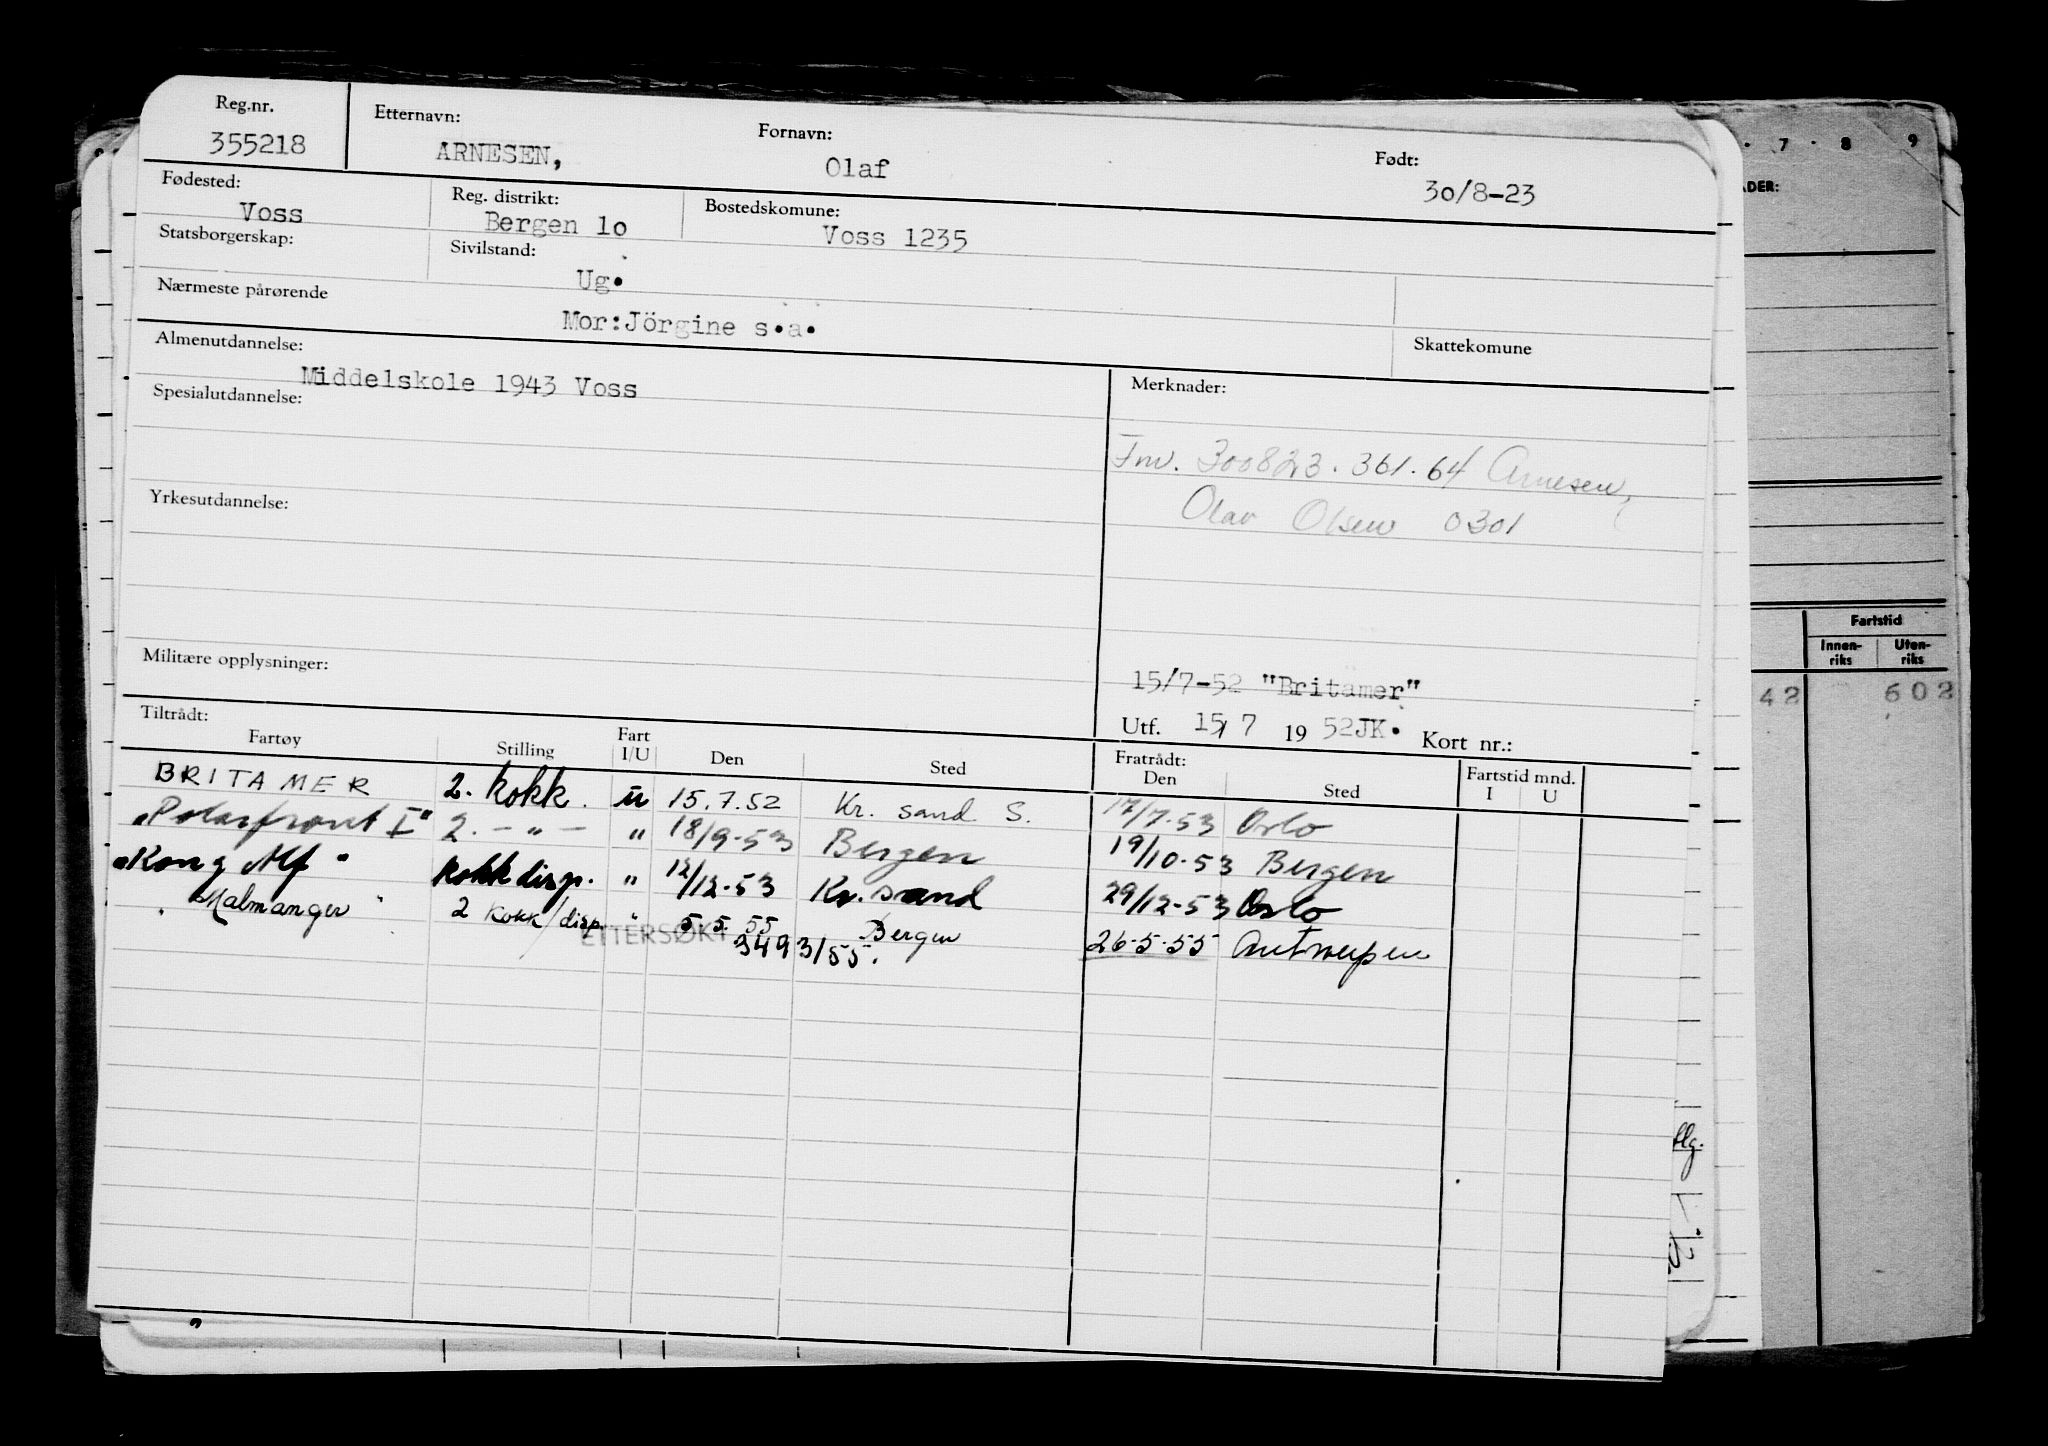 Reg.nr. Etternavn: Fornavn: Født:
355218 ARNESEN, Olaf 30/8-23
Fødested: Reg. distrikt: Bostedskomune:
Voss Bergen 1o Voss 1235
Statsborgerskap: Sivilstand:
Ug.
Nærmeste pårørende
Mor:Jörgine s.a.
Almenutdannelse: Skattekomune
Middelskole 1943 Voss
Spesialutdannelse: Merknader:
Fnr. 300823.361.64 Arnesen,
Olav Olsen 0301
Yrkesutdannelse:
Militære opplysninger:
15/7-52 "Britamer"
Utf. 15/7 1952JK. Kort nr.:
Tiltrådt: Fratrådt: Fartstid mnd.
Fartøy Stilling Fart I/U Den Sted Den Sted I U
BRITAMER 2. kokk. u 15.7.52 Kr. sand S. 17/7.53 Oslo
"Polarfront I" 2. -"- " 18/9-53 Bergen 19/10.53 Bergen
"Kong Alf" kokk disp. " 12/12-53 Kr. sand 29/12-53 Oslo
"Malmanger" 2 kokk/disp. " 5.5.55 Bergen 26-5-55 Antwerpen
ETTERSØKT 3493/55.
7 8 9
ADER:
Fartstid
Innen-riks Uten-riks
42 602